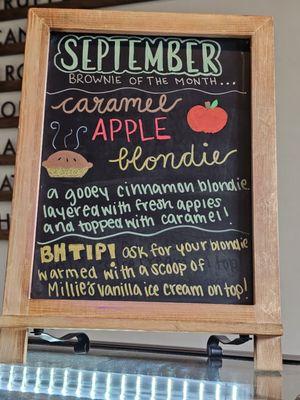 SEPTEMBER
BROWNIE OF THE MONTH...
caramel
APPLE
blondie
a gooey cinnamon blondie
layered with fresh apples
and topped with caramel!
BH TIP! ask for your blondie
warmed with a scoop of
Millie's vanilla ice cream on top!